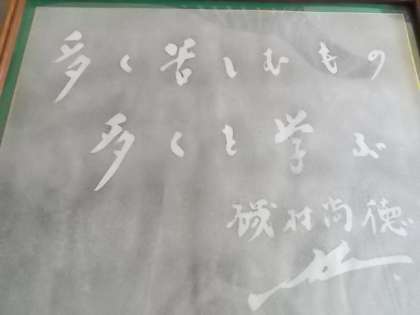 多く苦しむもの
多くを学ぶ
磯村尚徳